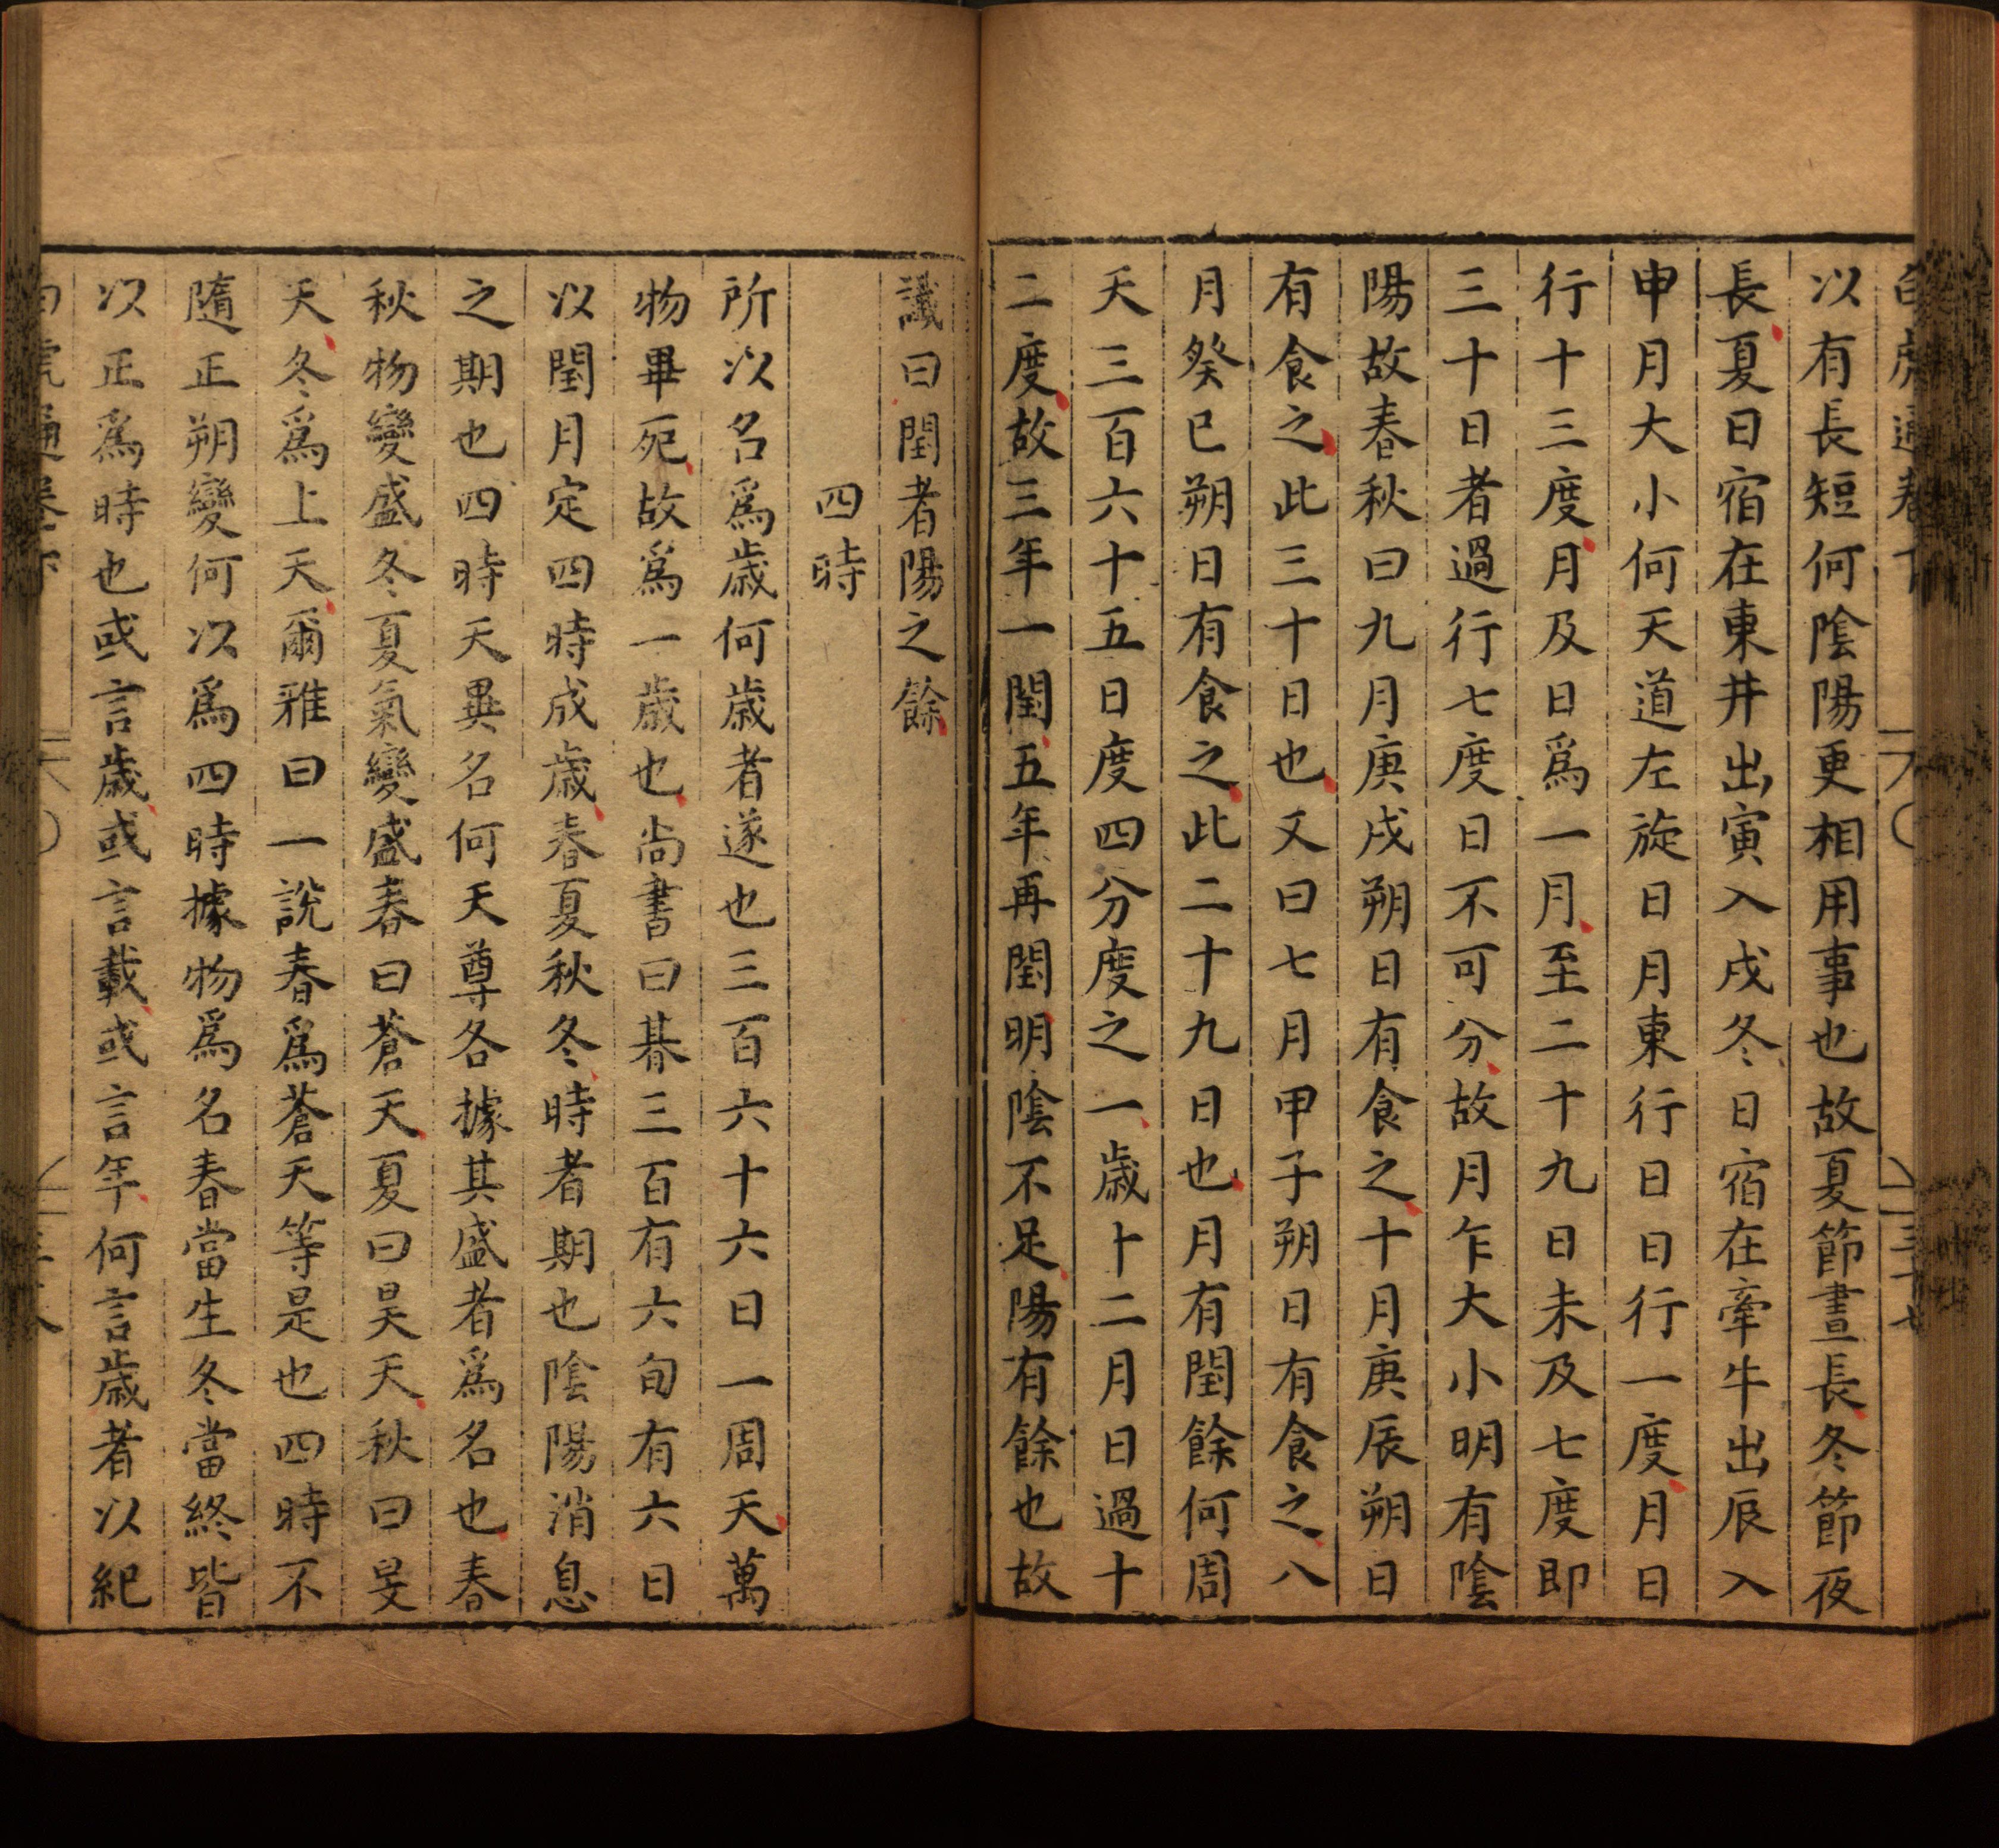 白虎通卷下
以有長短何陰陽更相用事也故夏節晝長冬節夜
長夏日宿在東井出寅入戌冬日宿在牽牛出辰入
申月大小何天道左旋日月東行日日行一度月日
行十三度月及日爲一月至二十九日未及七度即
三十日者過行七度日不可分故月乍大小明有陰
陽故春秋曰九月庚戌朔日有食之十月庚辰朔日
有食之此三十日也又曰七月甲子朔日有食之八
月癸巳朔日有食之此二十九日也月有閏餘何周
天三百六十五日度四分度之一歲十二月日過十
二度故三年一閏五年再閏明陰不足陽有餘也故
讖曰閏者陽之餘
四時
所以名爲歲何歲者遂也三百六十六日一周天萬
物畢死故爲一歲也尚書曰朞三百有六旬有六日
以閏月定四時成歲春夏秋冬時者期也陰陽消息
之期也四時天異名何天尊各據其盛者爲名也春
秋物變盛冬夏氣變盛春曰蒼天夏曰昊天秋曰旻
天冬爲上天爾雅曰一說春爲蒼天等是也四時不
隨正朔變何以爲四時據物爲名春當生冬當終皆
以正爲時也或言歲或言載或言年何言歲者以紀